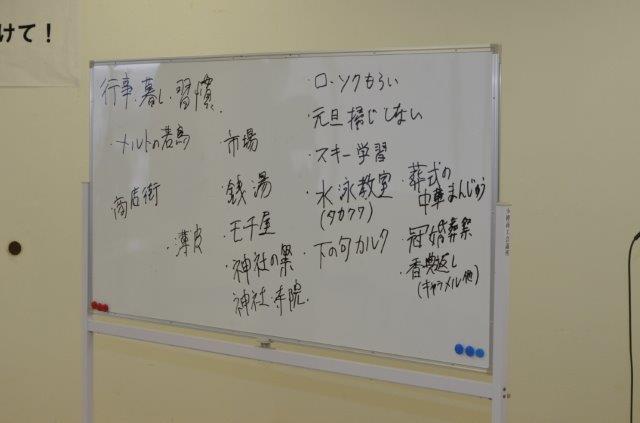 けて！
行事・暮し・習慣
・メルトの若鳥
商店街
・薄皮
市場
銭湯
モチ屋
神社の祭
神社・寺院
・ローソクもらい
・元旦掃じしない
・スキー学習
・水泳教室
(タカクワ)
・下の句カルタ
・葬式の
中華まんじゅう
・冠婚葬祭
・香典返し
(キャラメル他)
小樽商工会議所